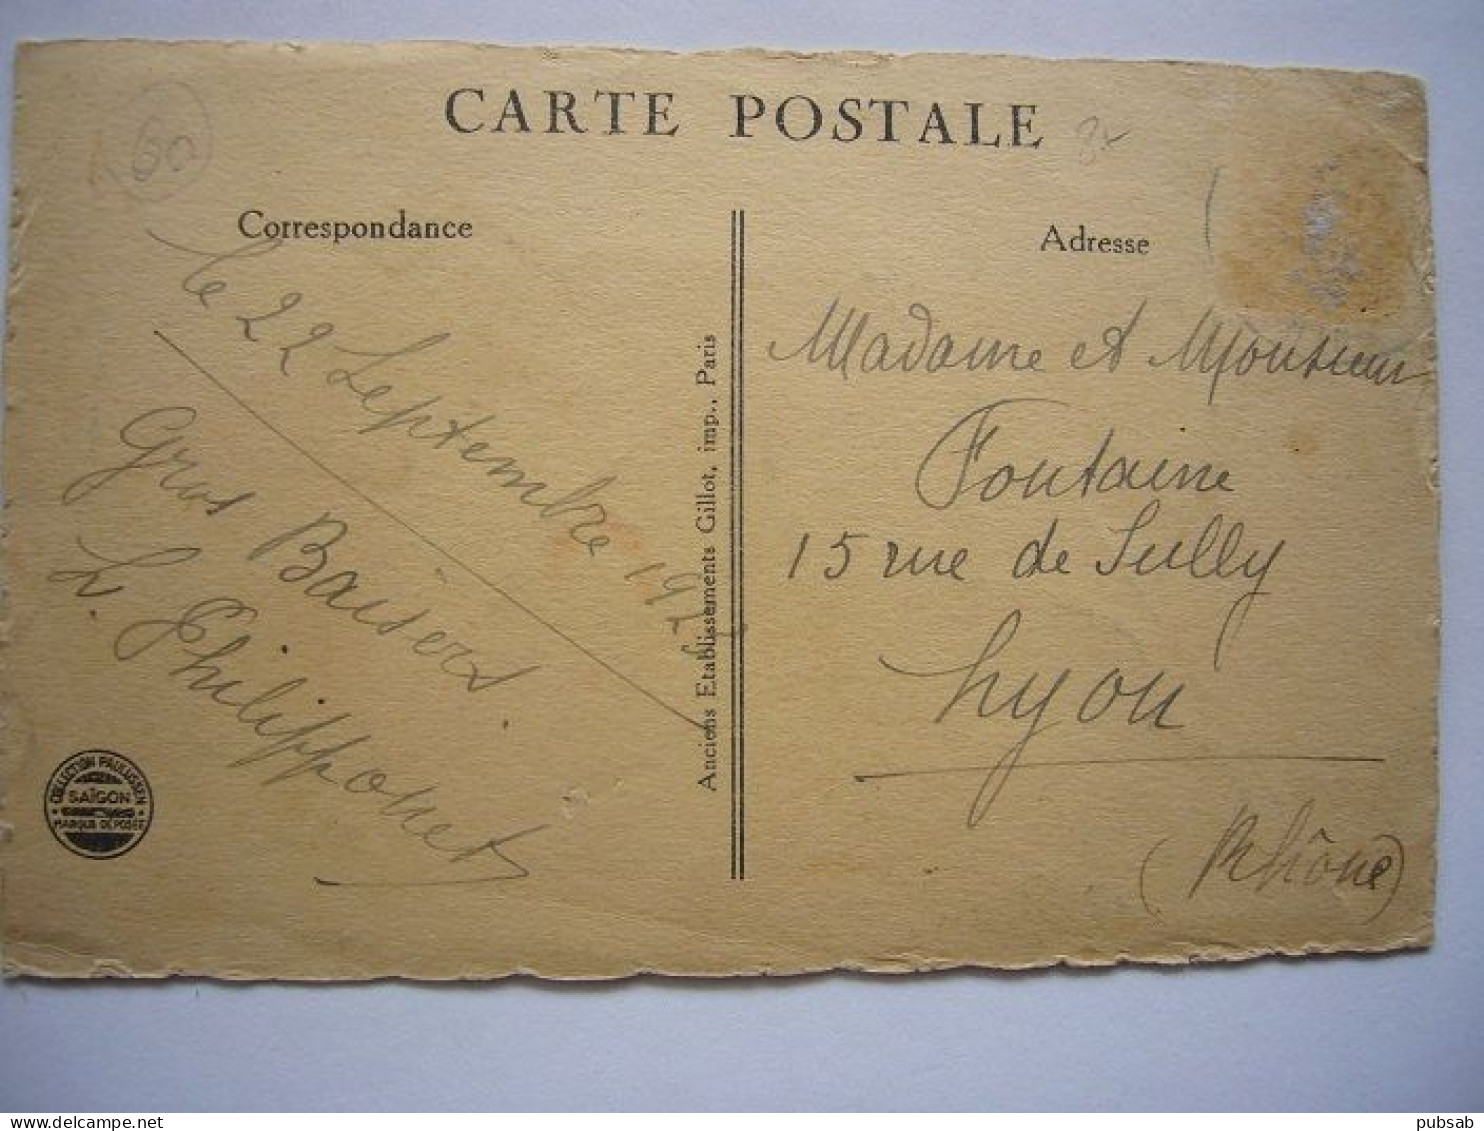 CARTE POSTALE
60
Correspondance
le 22 Septembre
Gros Baisers
L. Philipponet
COLLECTION PAULUSSEN
SAÏGON
MARQUE DÉPOSÉE
Anciens Etablissements Gillot, imp., Paris
Adresse
Madame et Monsieur
Fontaine
15 rue de Sully
Lyon
(Rhône)
pubsab